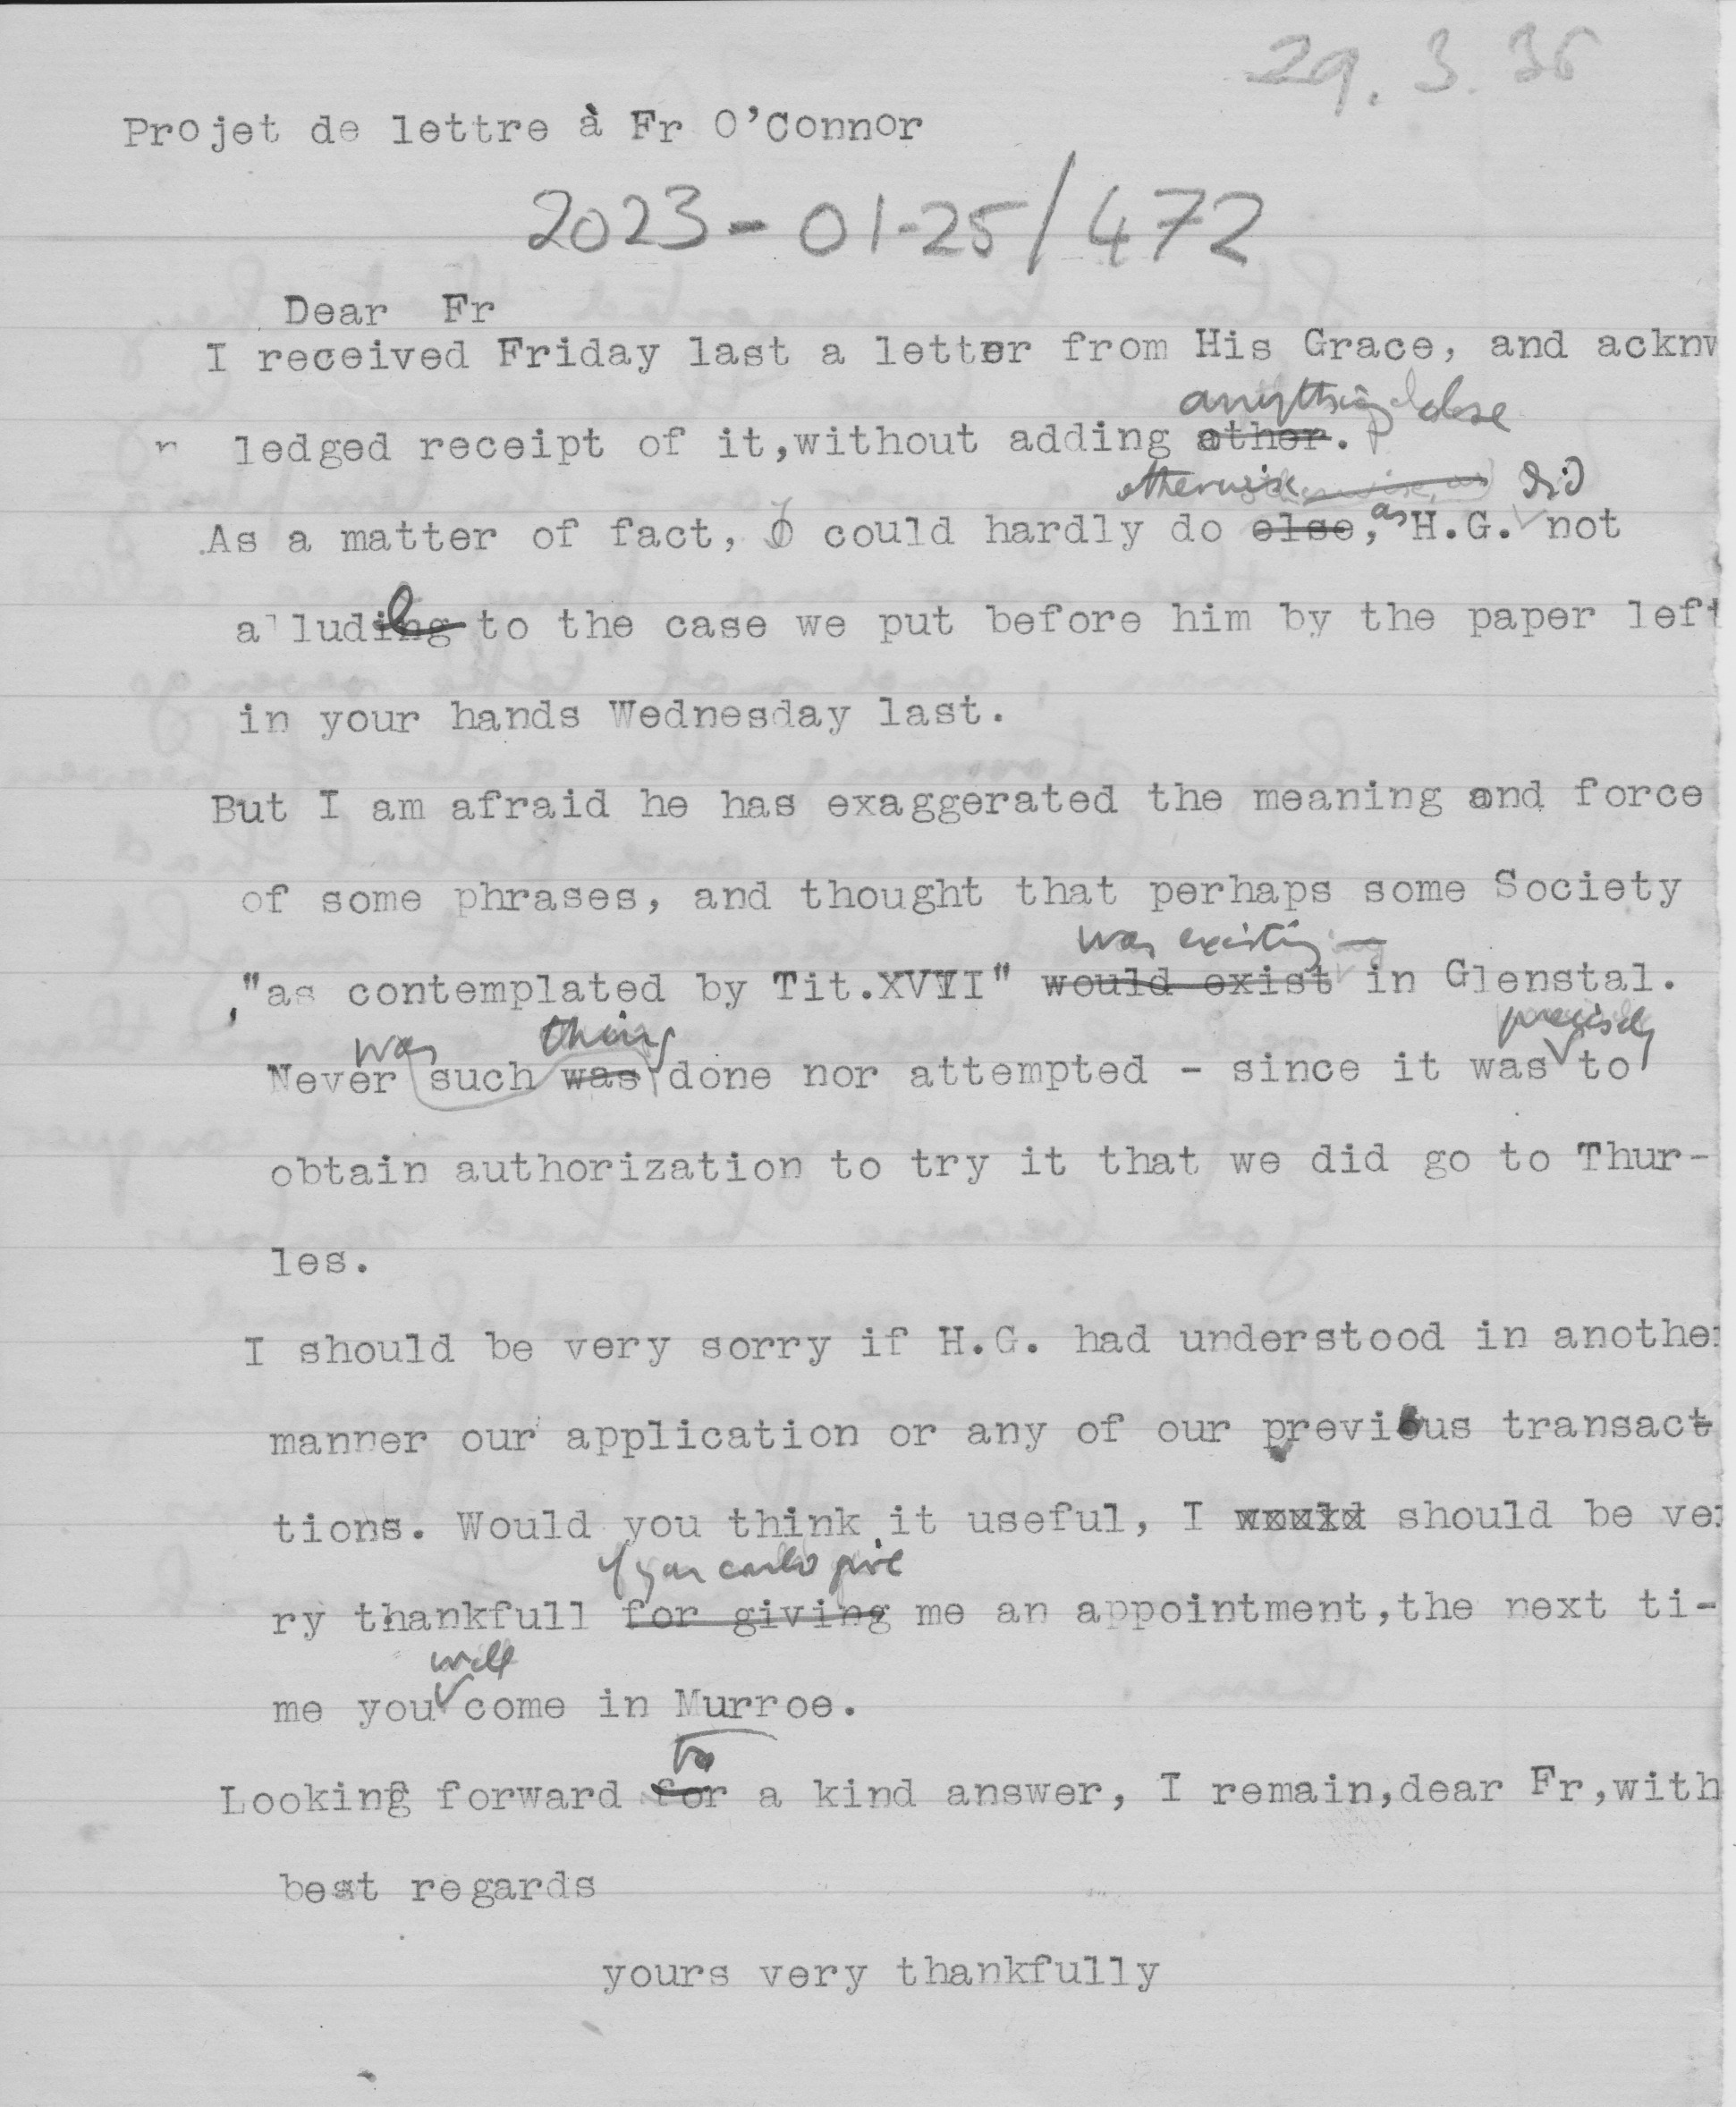 29.3.36
Projet de lettre à Fr O'Connor
2023-01-25/472
Dear Fr
I received Friday last a letter from His Grace, and acknw
anything else
ledged receipt of it,without adding other.
otherwise did
As a matter of fact, I could hardly do else, as H.G. not
alluding to the case we put before him by the paper left
in your hands Wednesday last.
But I am afraid he has exaggerated the meaning and force
of some phrases, and thought that perhaps some Society
was existing
"as contemplated by Tit.XVII" would exist in Glenstal.
was thing precisely
Never such was done nor attempted - since it was to
obtain authorization to try it that we did go to Thur-
les.
I should be very sorry if H.G. had understood in another
manner our application or any of our previous transact
tions. Would you think it useful, I would should be ver
if you could give
ry thankfull for giving me an appointment,the next ti-
will
me you come in Murroe.
to
Looking forward for a kind answer, I remain,dear Fr,with
best regards
yours very thankfully